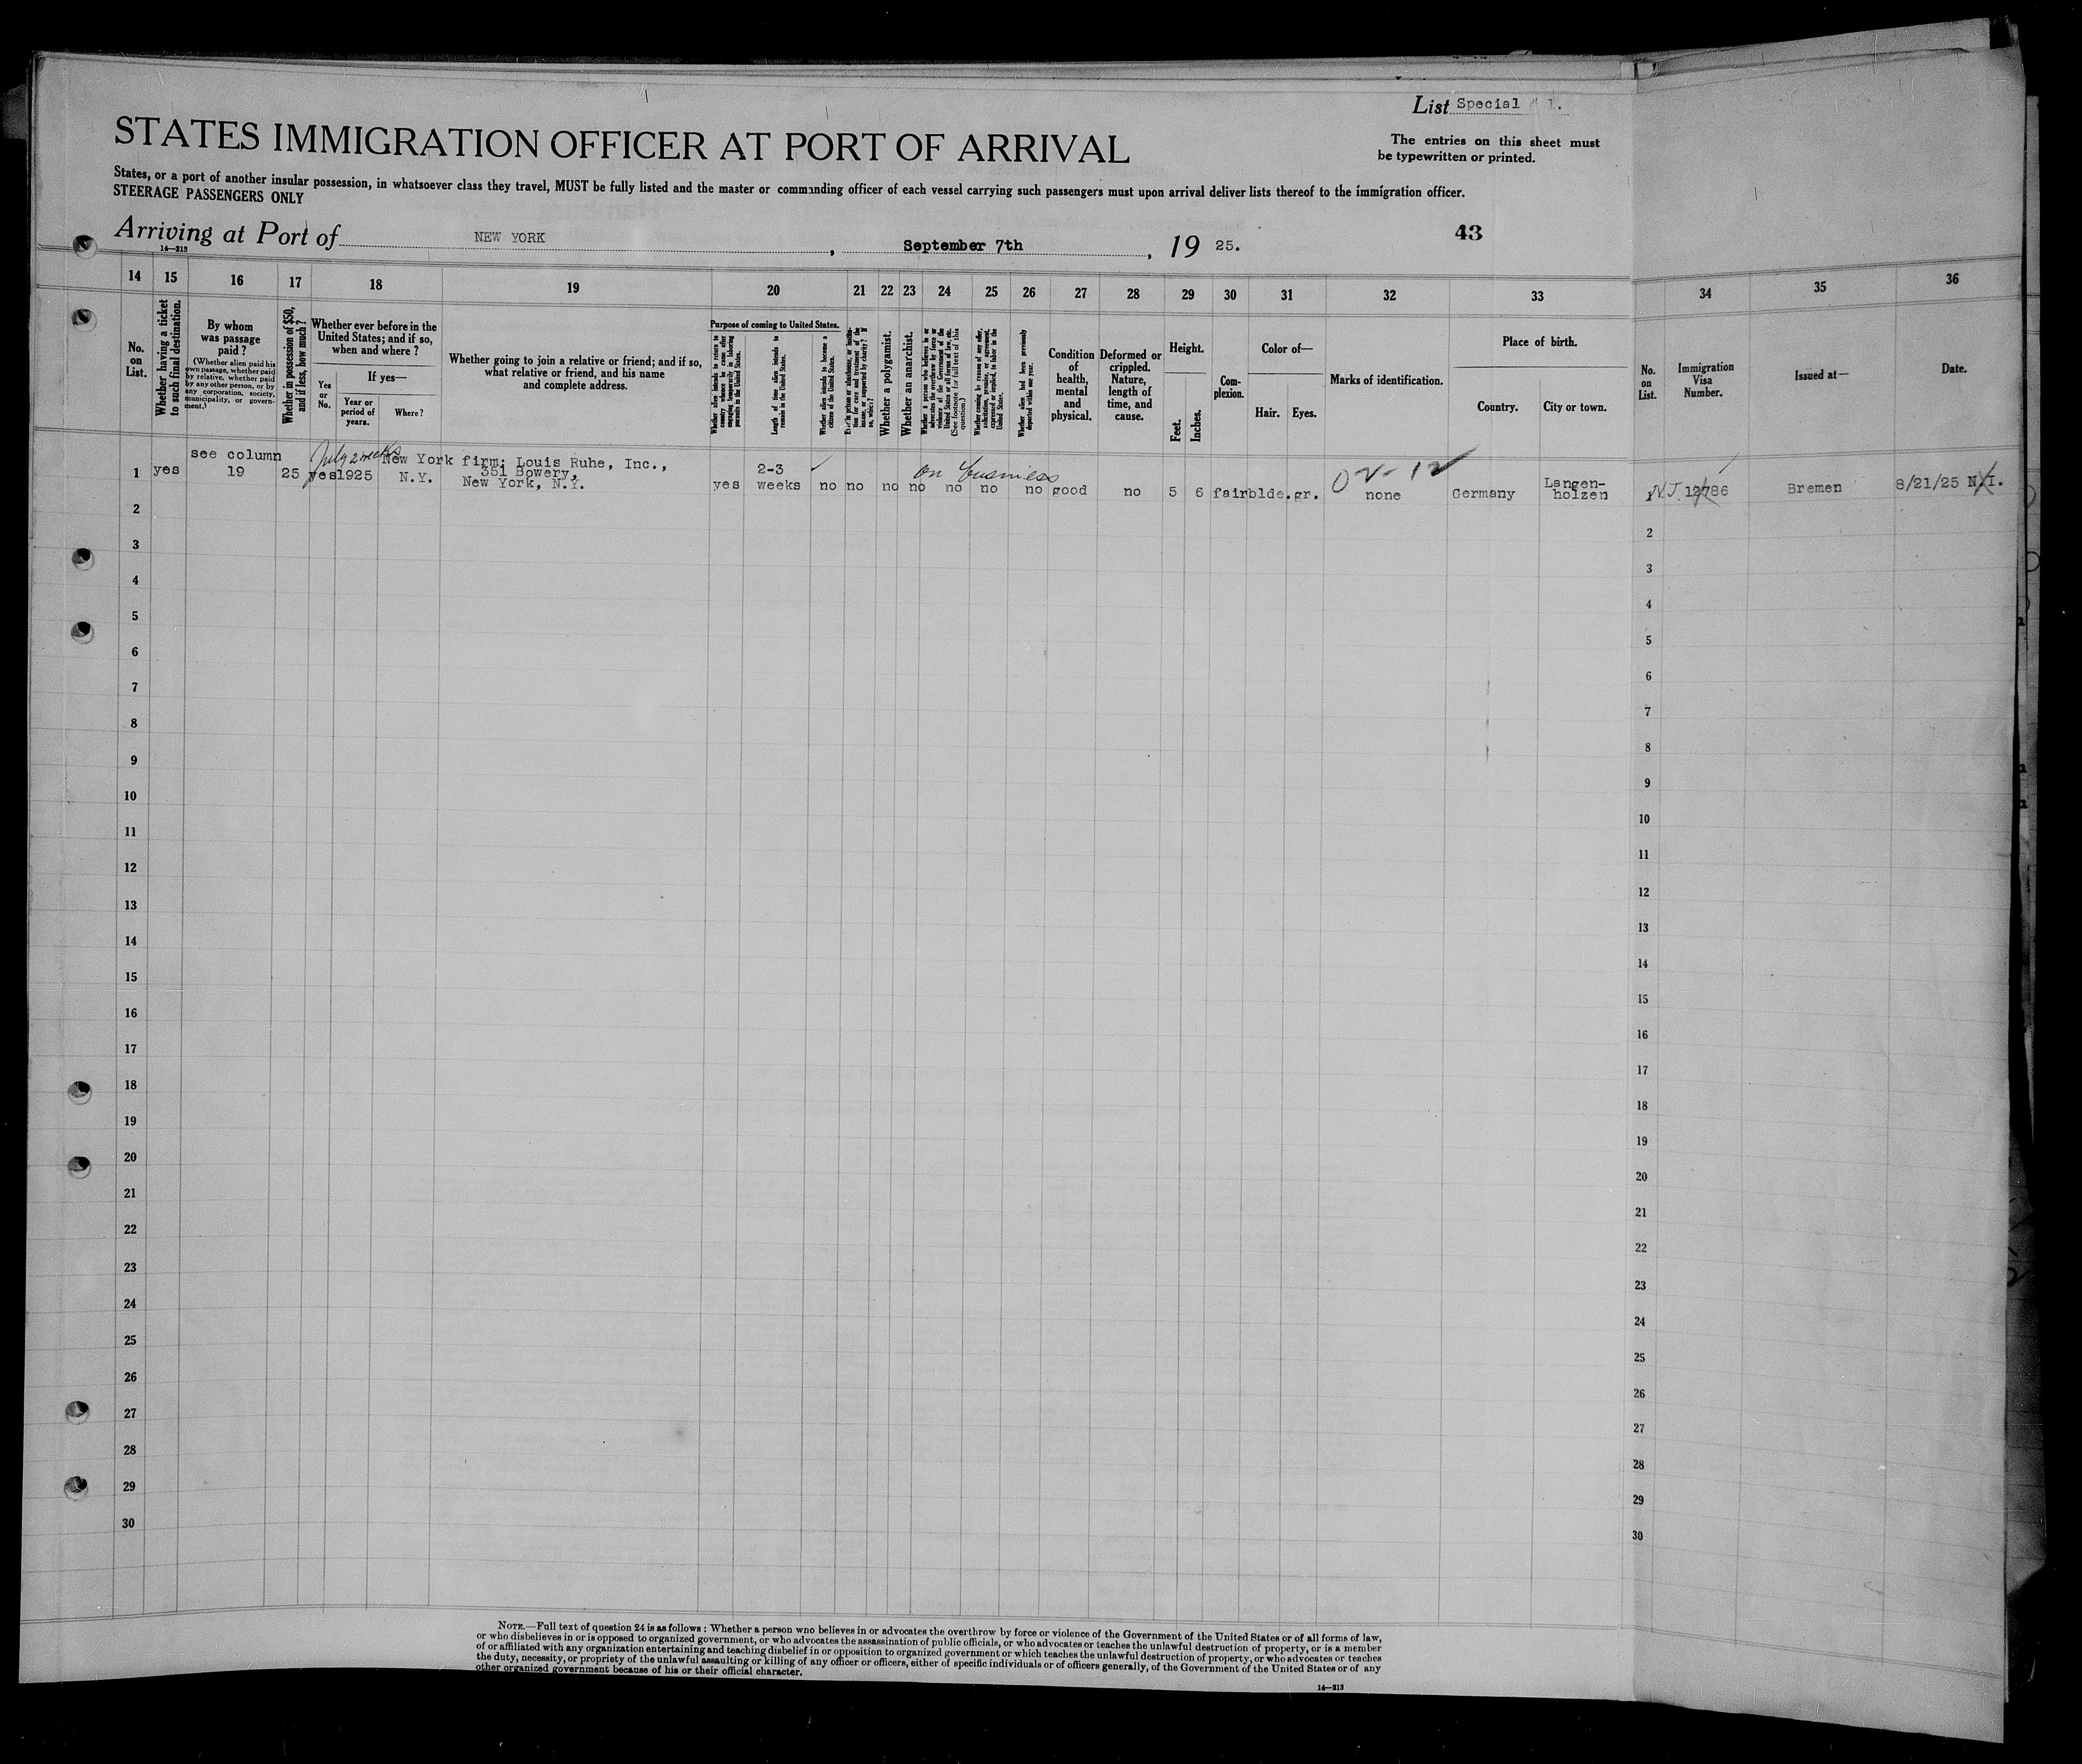 List Special 1.
STATES IMMIGRATION OFFICER AT PORT OF ARRIVAL
The entries on this sheet must
be typewritten or printed.
States, or a port of another insular possession, in whatsoever class they travel, MUST be fully listed and the master or commanding officer of each vessel carrying such passengers must upon arrival deliver lists thereof to the immigration officer.
STEERAGE PASSENGERS ONLY
Arriving at Port of NEW YORK , September 7th , 19 25.
43
14—213
14 15 16 17 18 19 20 21 22 23 24 25 26 27 28 29 30 31 32 33 34 35 36
No. on List.
Whether having a ticket to such final destination.
By whom was passage paid?
(Whether alien paid his own passage, whether paid by relative, whether paid by any other person, or by any corporation, society, municipality, or government.)
Whether in possession of $50, and if less, how much?
Whether ever before in the United States; and if so, when and where?
Yes or No.
If yes—
Year or period of years.
Where?
Whether going to join a relative or friend; and if so, what relative or friend, and his name and complete address.
Purpose of coming to United States.
Whether alien intends to return to country whence he came after engaging temporarily in laboring pursuits in the United States.
Length of time alien intends to remain in the United States.
Whether alien intends to become a citizen of the United States.
Ever in prison or almshouse, or institution for care and treatment of the insane, or supported by charity? If so, which?
Whether a polygamist.
Whether an anarchist.
Whether a person who believes in or advocates the overthrow by force or violence of the Government of the United States or all forms of law, etc. (See footnote for full text of this question.)
Whether coming by reason of any offer, solicitation, promise, or agreement, expressed or implied, to labor in the United States.
Whether alien had been previously deported within one year.
Condition of health, mental and physical.
Deformed or crippled. Nature, length of time, and cause.
Height.
Feet.
Inches.
Complexion.
Color of—
Hair.
Eyes.
Marks of identification.
Place of birth.
Country.
City or town.
No. on List.
Immigration Visa Number.
Issued at—
Date.
July 2 weeks
on business
see column New York firm: Louis Ruhe, Inc.,
1 yes 19 25 yes 1925 N.Y. 351 Bowery,
New York, N.Y.
2-3
yes weeks no no no no no no no good no 5 6 fair blde. gr. none Germany Langen-
holzen
1 12786 Bremen 8/21/25 N.I.
2 2
3 3
4 4
5 5
6 6
7 7
8 8
9 9
10 10
11 11
12 12
13 13
14 14
15 15
16 16
17 17
18 18
19 19
20 20
21 21
22 22
23 23
24 24
25 25
26 26
27 27
28 28
29 29
30 30
NOTE.—Full text of question 24 is as follows: Whether a person who believes in or advocates the overthrow by force or violence of the Government of the United States or of all forms of law,
or who disbelieves in or is opposed to organized government, or who advocates the assassination of public officials, or who advocates or teaches the unlawful destruction of property, or is a member
of or affiliated with any organization entertaining and teaching disbelief in or opposition to organized government or which teaches the unlawful destruction of property, or who advocates or teaches
the duty, necessity, or propriety of the unlawful assaulting or killing of any officer or officers, either of specific individuals or of officers generally, of the Government of the United States or of any
other organized government because of his or their official character.
14—213